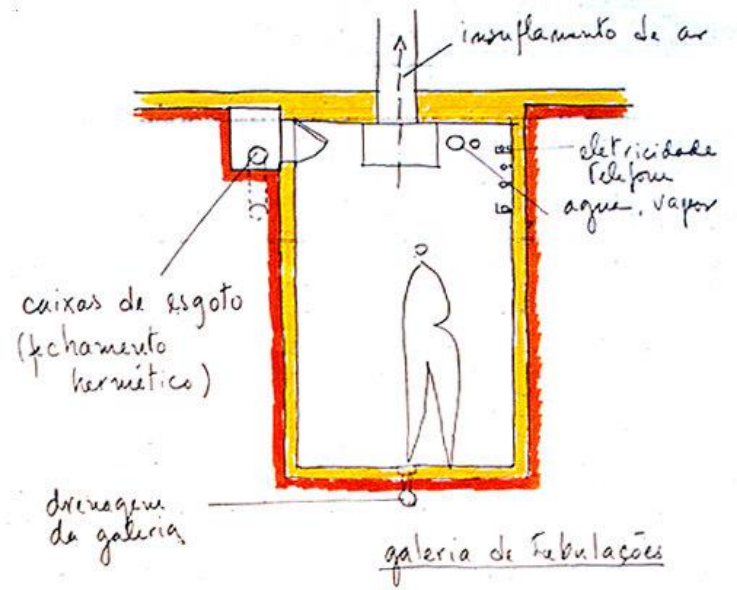 insuflamento de ar
eletricidade
telefone
agua, vapor
caixas de esgoto
(fechamento
hermético)
drenagem
da galeria
galeria de tubulações